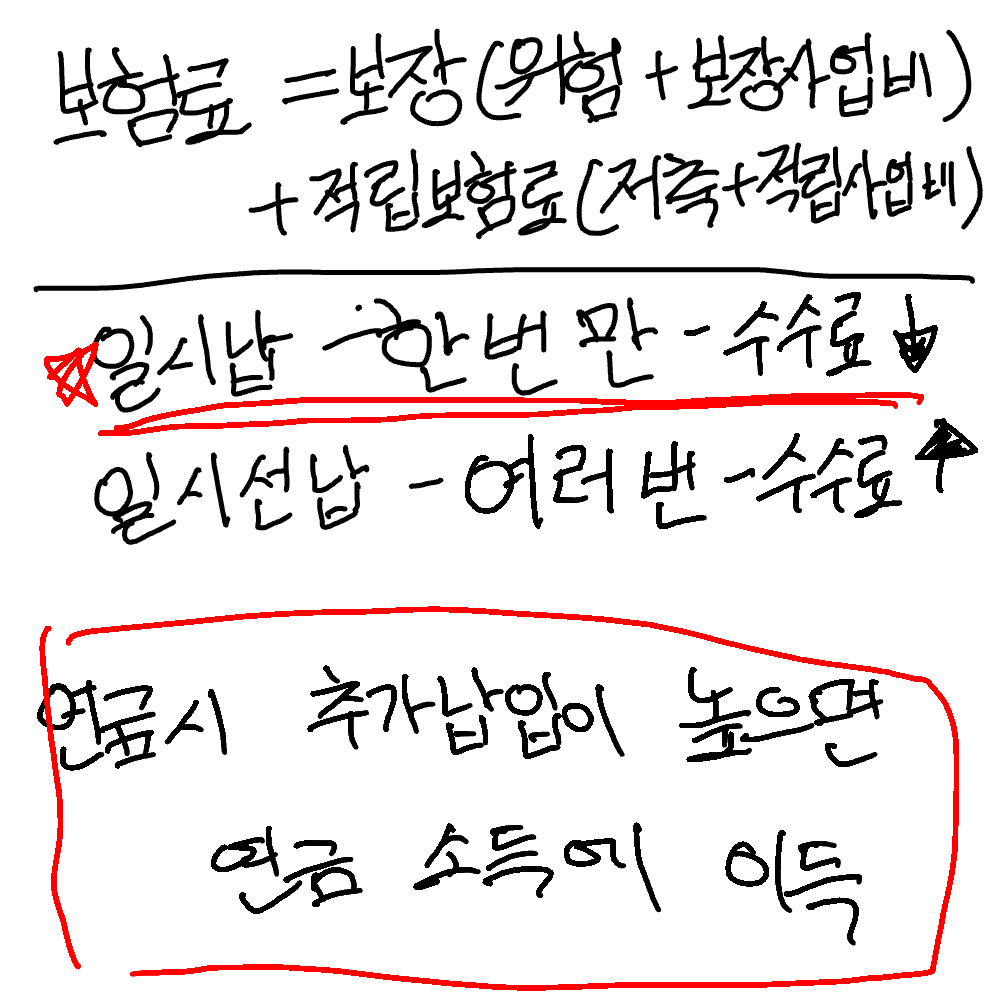 보험료 = 보장(위험 + 보장사업비)
+ 적립보험료(저축+적립사업비)
일시납 → 한번만 - 수수료 ↓
일시선납 - 여러번 - 수수료 ↑
연금시 추가납입이 높으면
연금 소득에 이득